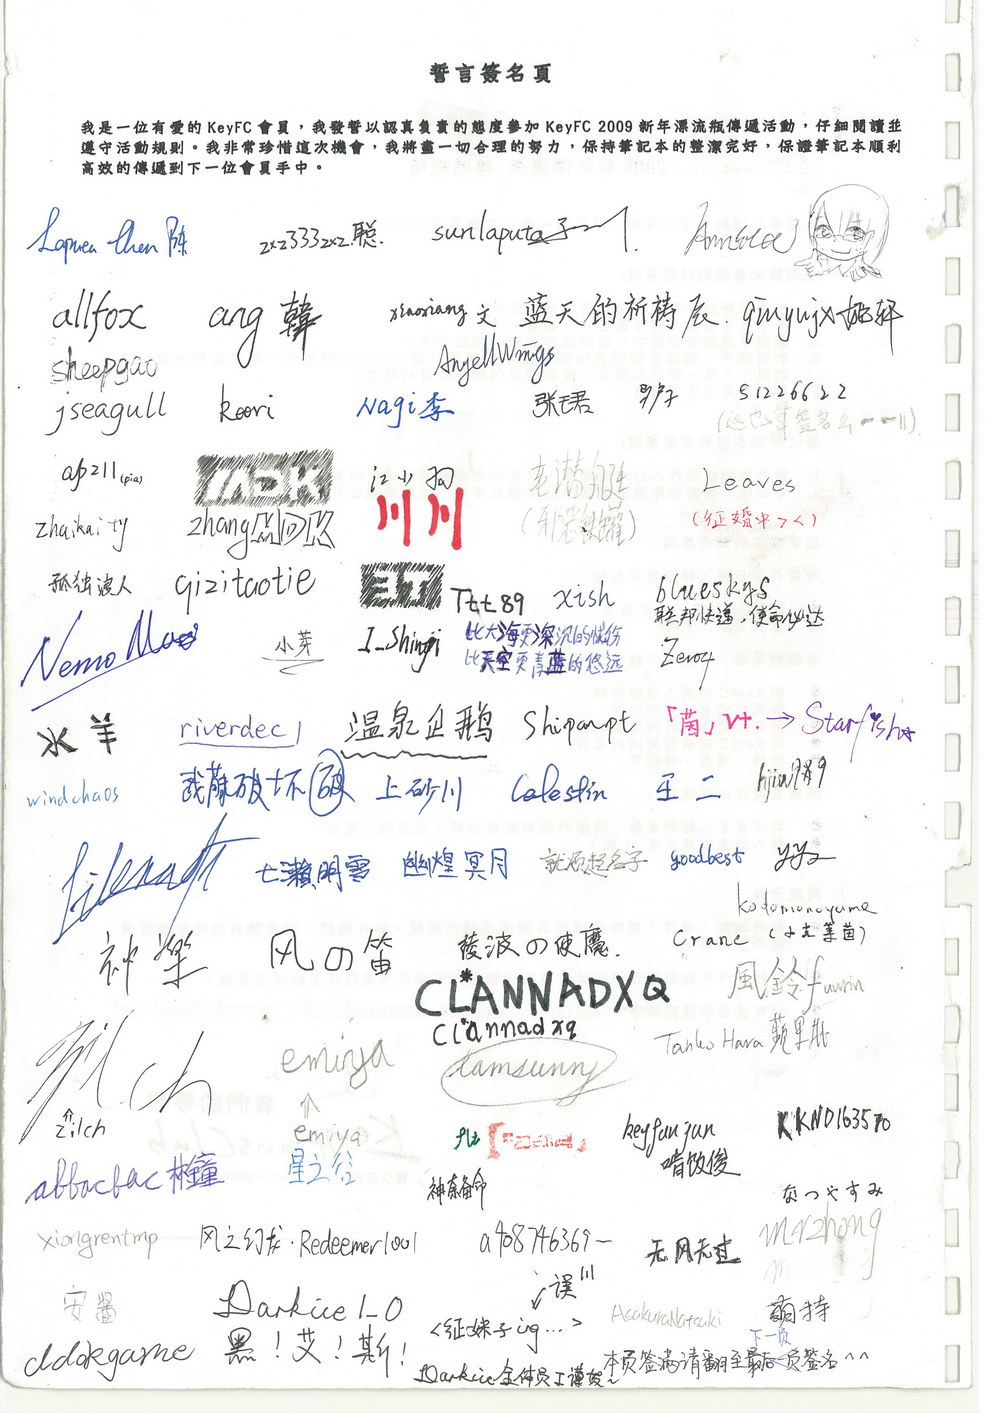 誓言簽名頁
我是一位有愛的 KeyFC 會員，我發誓以認真負責的態度參加 KeyFC 2009 新年漂流瓶傳遞活動，仔細閱讀並
遵守活動規則。我非常珍惜這次機會，我將盡一切合理的努力，保持筆記本的整潔完好，保證筆記本順利
高效的傳遞到下一位會員手中。
Chen 陈 zxz333zxz 聪. sunlaputa
allfox ang 韓 xiaoxiang 文 蓝天的祈祷辰. qinyujx 姚轩
sheepgao AngellWings
jseagull koori Nagi李 张珺 51226622
(这也算签名么
ap211(pia) MDK 江小狗 老潜艇 Leaves
zhaikaity zhang MDK 川川 (征婚中><)
孤独浪人 qizitaotie ETI Ttt89 xish bluesky8
联邦快递，使命必达
Nemo 小芽 I_Shinji 比大海更深沉的情伤
比天空更青蓝的悠远
Zero4
水羊 riverdec1 温泉企鹅 Shipanpt 「茵」 V+. → Starfish
windchaos 破坏 破 上砂川 Celestin 王二
七瀬明雪 幽煌冥月 就须起名字 goodbest yy2
kotomonoyume
神樂 风の笛 稜波の使魔. Crane
CLANNADXQ
clannadxq
風鈴fuurin
emiya tamsunny Tanko Hara 蘋果
zilch emiya keyfunjun
啃饭俊
KKND163570
abbacbac 林鐘 星之谷 神奈备命
なつやすみ
xiongrentmp 风之幻龙·Redeemer1001 a408746369 无风无过 mrzhong
误!!!
安醬 Darkice1_0 <征妹子ing...> AsakuraNatsuki 萌特
ddokgame 黑！艾！斯！ 下一页
Darkice全体员工谨贺~ 本页签满请翻至最后一页签名^^